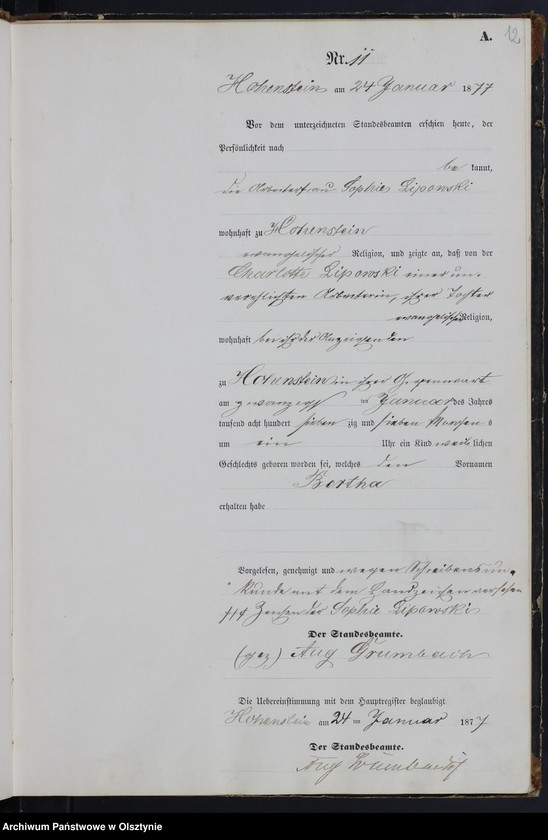 A.
12
Nr. 11
Hohenstein am 24 Januar 1877
Vor dem unterzeichneten Standesbeamten erschien heute, der
Persönlichkeit nach
be kannt,
die Arbeiterfrau Sophie Lipowski
wohnhaft zu Hohenstein
evangelischer Religion, und zeigte an, daß von der
Charlotte Lipowski einer un-
verehlichten Arbeiterin, ihrer Tochter
evangelischer Religion,
wohnhaft bei ihr der Anzeigenden
zu Hohenstein in ihrer Gegenwart
am zwanzigs ten Januar des Jahres
tausend acht hundert sieben zig und sieben Morgens
um ein Uhr ein Kind weib lichen
Geschlechts geboren worden sei, welches den Vornamen
Bertha
erhalten habe
Vorgelesen, genehmigt und wegen Schreibensun-
kunde mit dem Handzeichen versehen
+++ Zeichen der Sophie Lipowski
Der Standesbeamte.
(gez) Aug Grumbach
Die Uebereinstimmung mit dem Hauptregister beglaubigt
Hohenstein am 24 ten Januar 1877
Der Standesbeamte.
Aug Grumbach
Archiwum Państwowe w Olsztynie